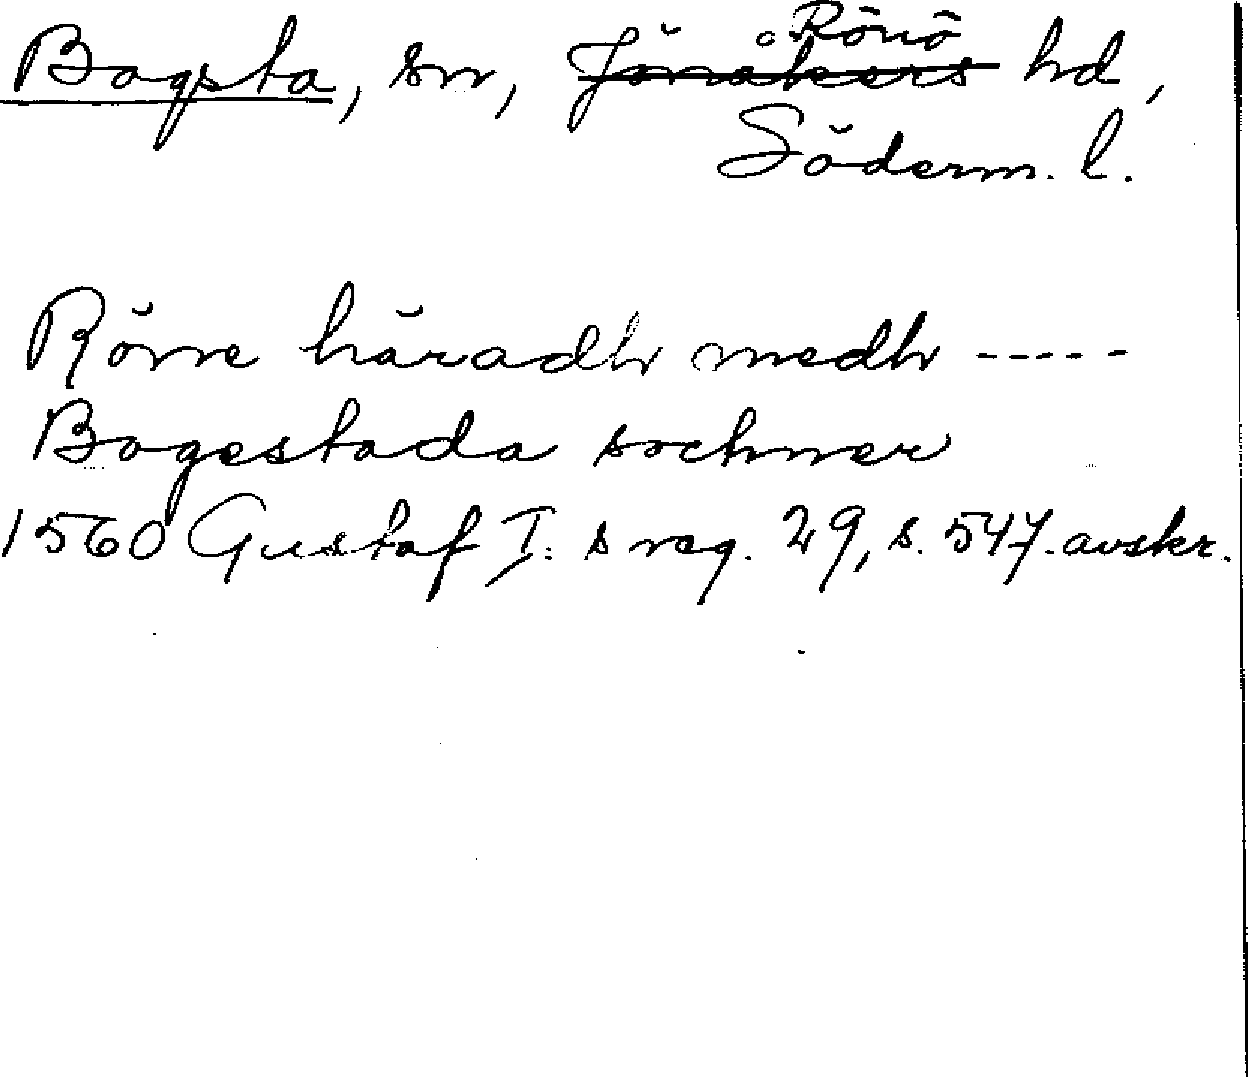 Bogsta, sn, Jönåkers Rönö hd,
Söderm. l.
Rönne häradh medh -----
Bogestada sochner
1560 Gustaf I:s reg. 29, s. 547. avskr.